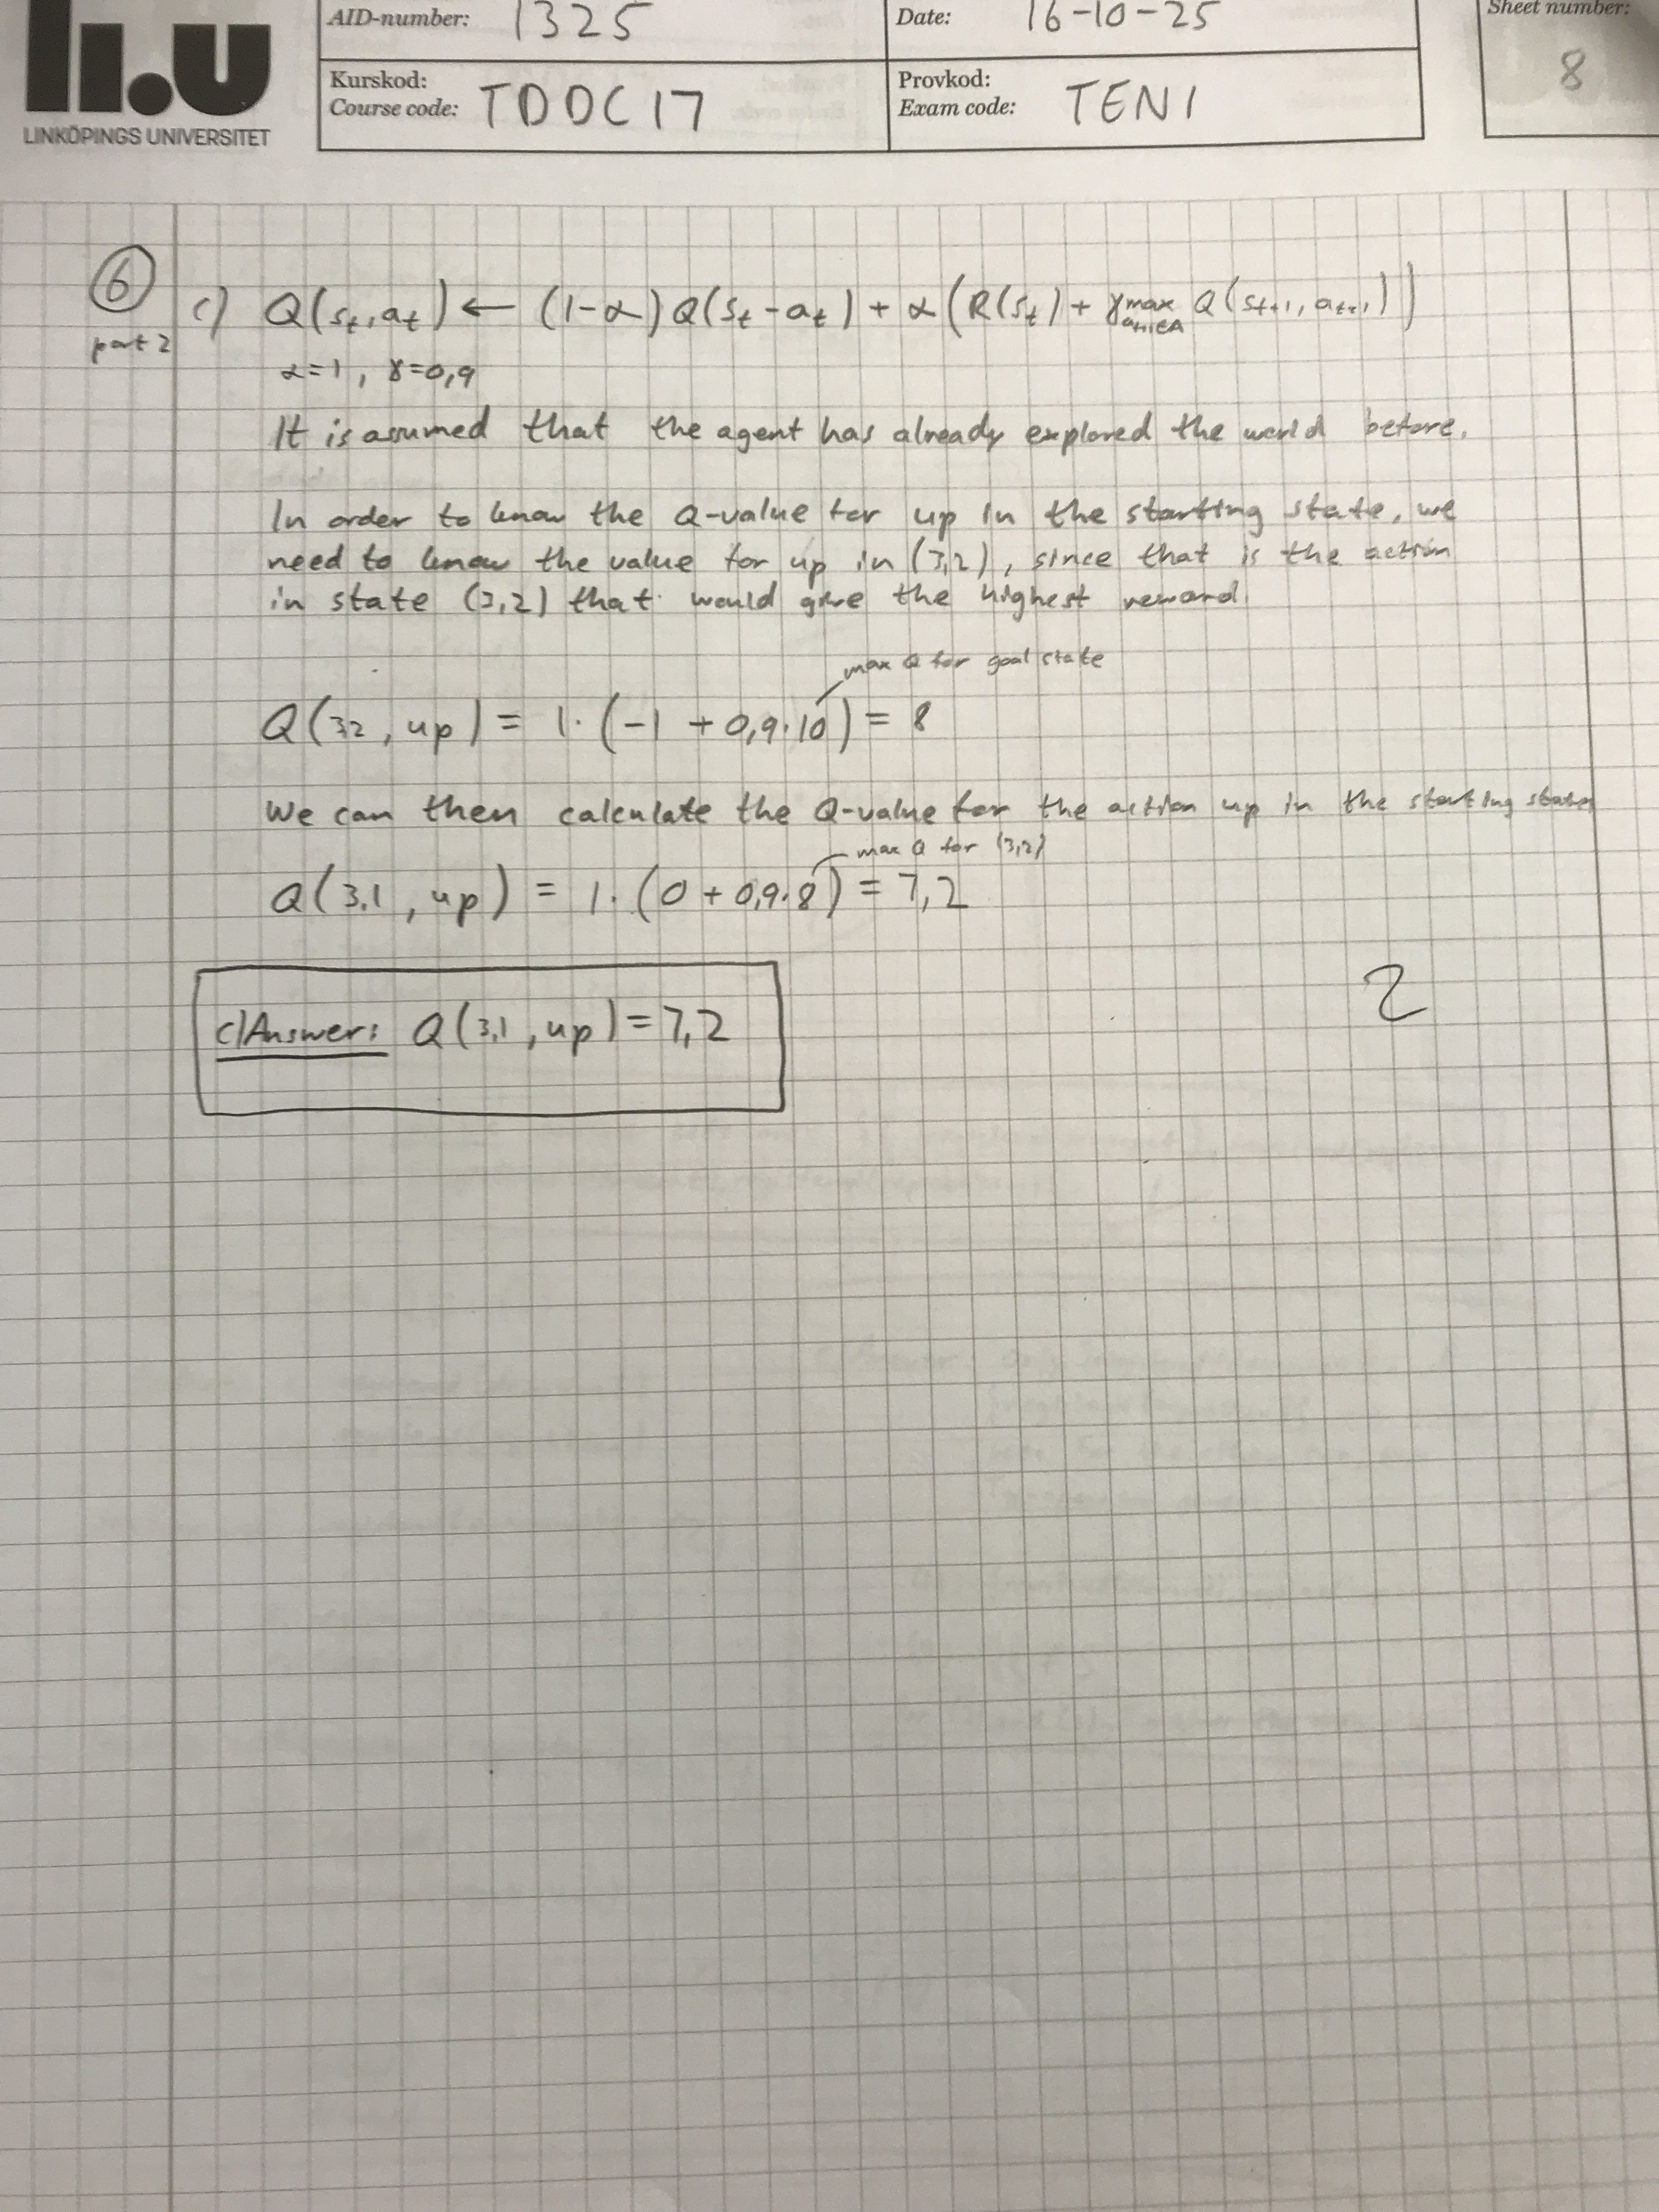 AID-number: 1325 Date: 16-10-25 Sheet number:
Kurskod: Provkod: 8
Course code: TDDC17 Exam code: TEN1
li.u
LINKÖPINGS UNIVERSITET
6 c) Q(s_t, a_t) ← (1-α) Q(s_t - a_t) + α(R(s_t) + γ max_{a_{t+1}∈A} Q(s_{t+1}, a_{t+1}))
part 2
α=1, γ=0,9
It is assumed that the agent has already explored the world before.
In order to know the Q-value for up in the starting state, we
need to know the value for up in (3,2), since that is the action
in state (3,2) that would give the highest reward.
max Q for goal state
Q(32, up) = 1·(-1 + 0,9·10) = 8
We can then calculate the Q-value for the action up in the starting state
max Q for (3,2)
Q(3.1, up) = 1·(0 + 0,9·8) = 7,2
2
c) Answer: Q(3,1, up) = 7,2